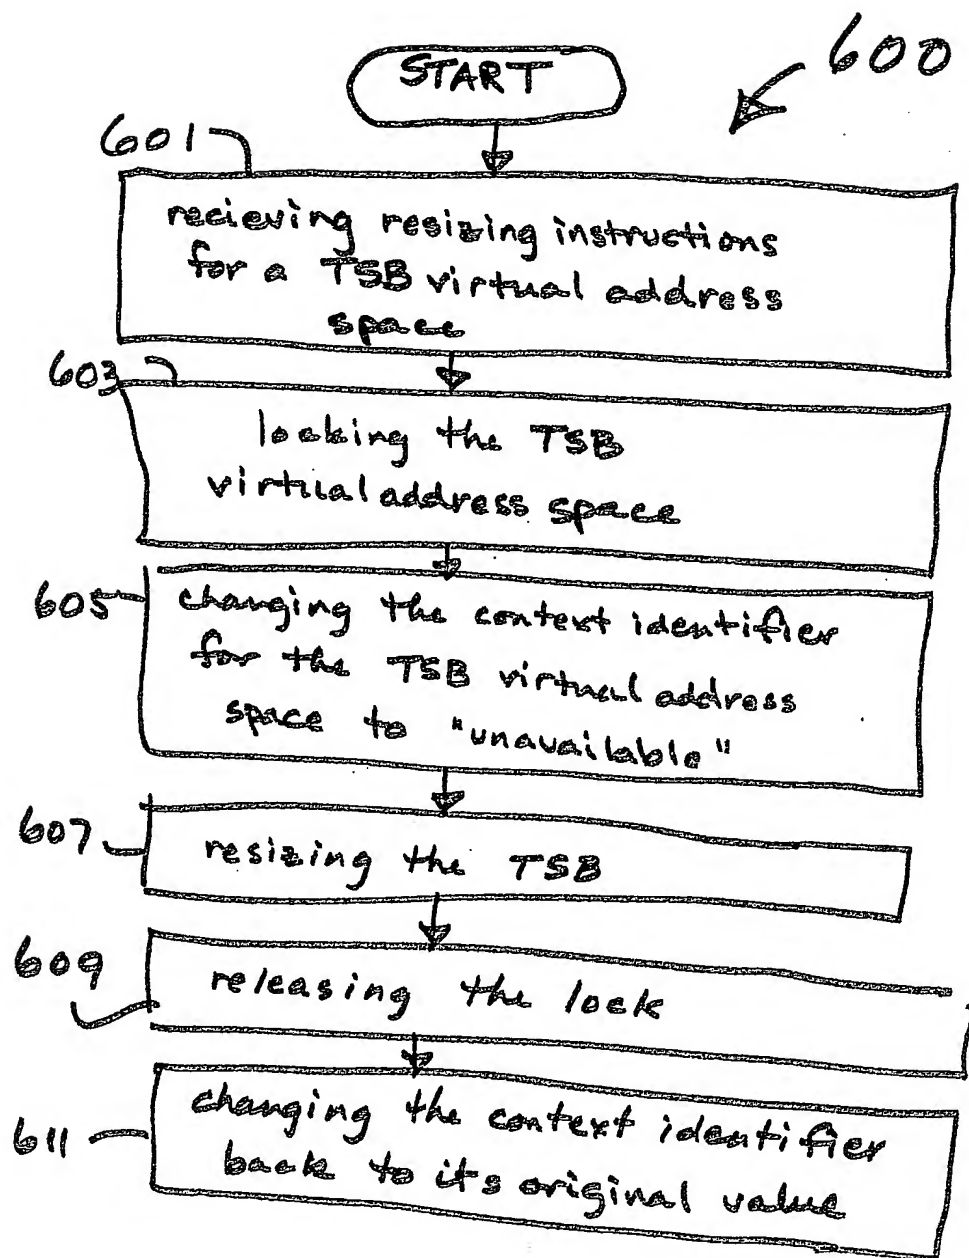 START
600
601
recieving resizing instructions
for a TSB virtual address
space
603
locking the TSB
virtual address space
605
changing the context identifier
for the TSB virtual address
space to "unavailable"
607
resizing the TSB
609
releasing the lock
611
changing the context identifier
back to its original value